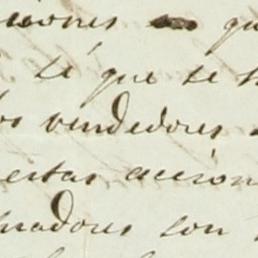 ciones qu
sé que se
los vendedores
estas accion
nadores son